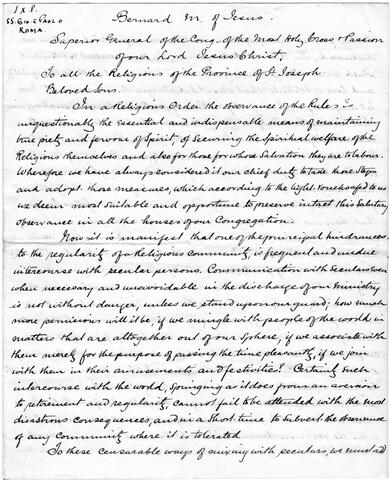 J. X. P.
SS. Gio. e Paolo
Roma
Bernard M. of Jesus.
Superior General of the Cong. of the Most Holy Cross & Passion
of our Lord Jesus Christ,
To all the Religious of the Province of St Joseph
Beloved Sons.
In a Religious Order the observance of the Rules is
unquestionably the essential and indispensable means of maintaining
true piety and fervour of Spirit, of Securing the Spiritual welfare of the
Religious themselves and also for those for whose Salvation they are to labour.
Wherefore we have always considered it our chief duty to take those Steps
and adopt those measures, which according to the light vouchsafed to us
we deem most Suitable and opportune to preserve intact this Salutary
observance in all the houses of our Congregation.
Now it is manifest that one of the principal hindrances
to the regularity of a Religious Community, is frequent and undue
intercourse with secular persons. Communication with Seculars even
when necessary and unavoidable in the discharge of our Ministry
is not without danger, unless we stand upon our guard; how much
more pernicious will it be, if we mingle with people of the world in
matters that are altogether out of our Sphere, if we associate with
them merely for the purpose of passing the time pleasantly, if we join
with them in their amusements and festivities? Certainly Such
intercourse with the world, Springing as it does from an aversion
to retirement and regularity, cannot fail to be attended with the most
disastrous consequences, and in a Short time to Subvert the observance
of any Community where it is tolerated
To these censurable ways of mixing with seculars, we must ad